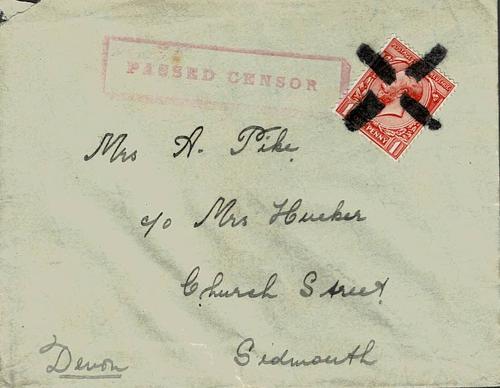 PASSED CENSOR
POSTAGE REVENUE
1 PENNY 1
Mrs A. Pike
c/o Mrs Hucker
Church Street
Sidmouth
Devon